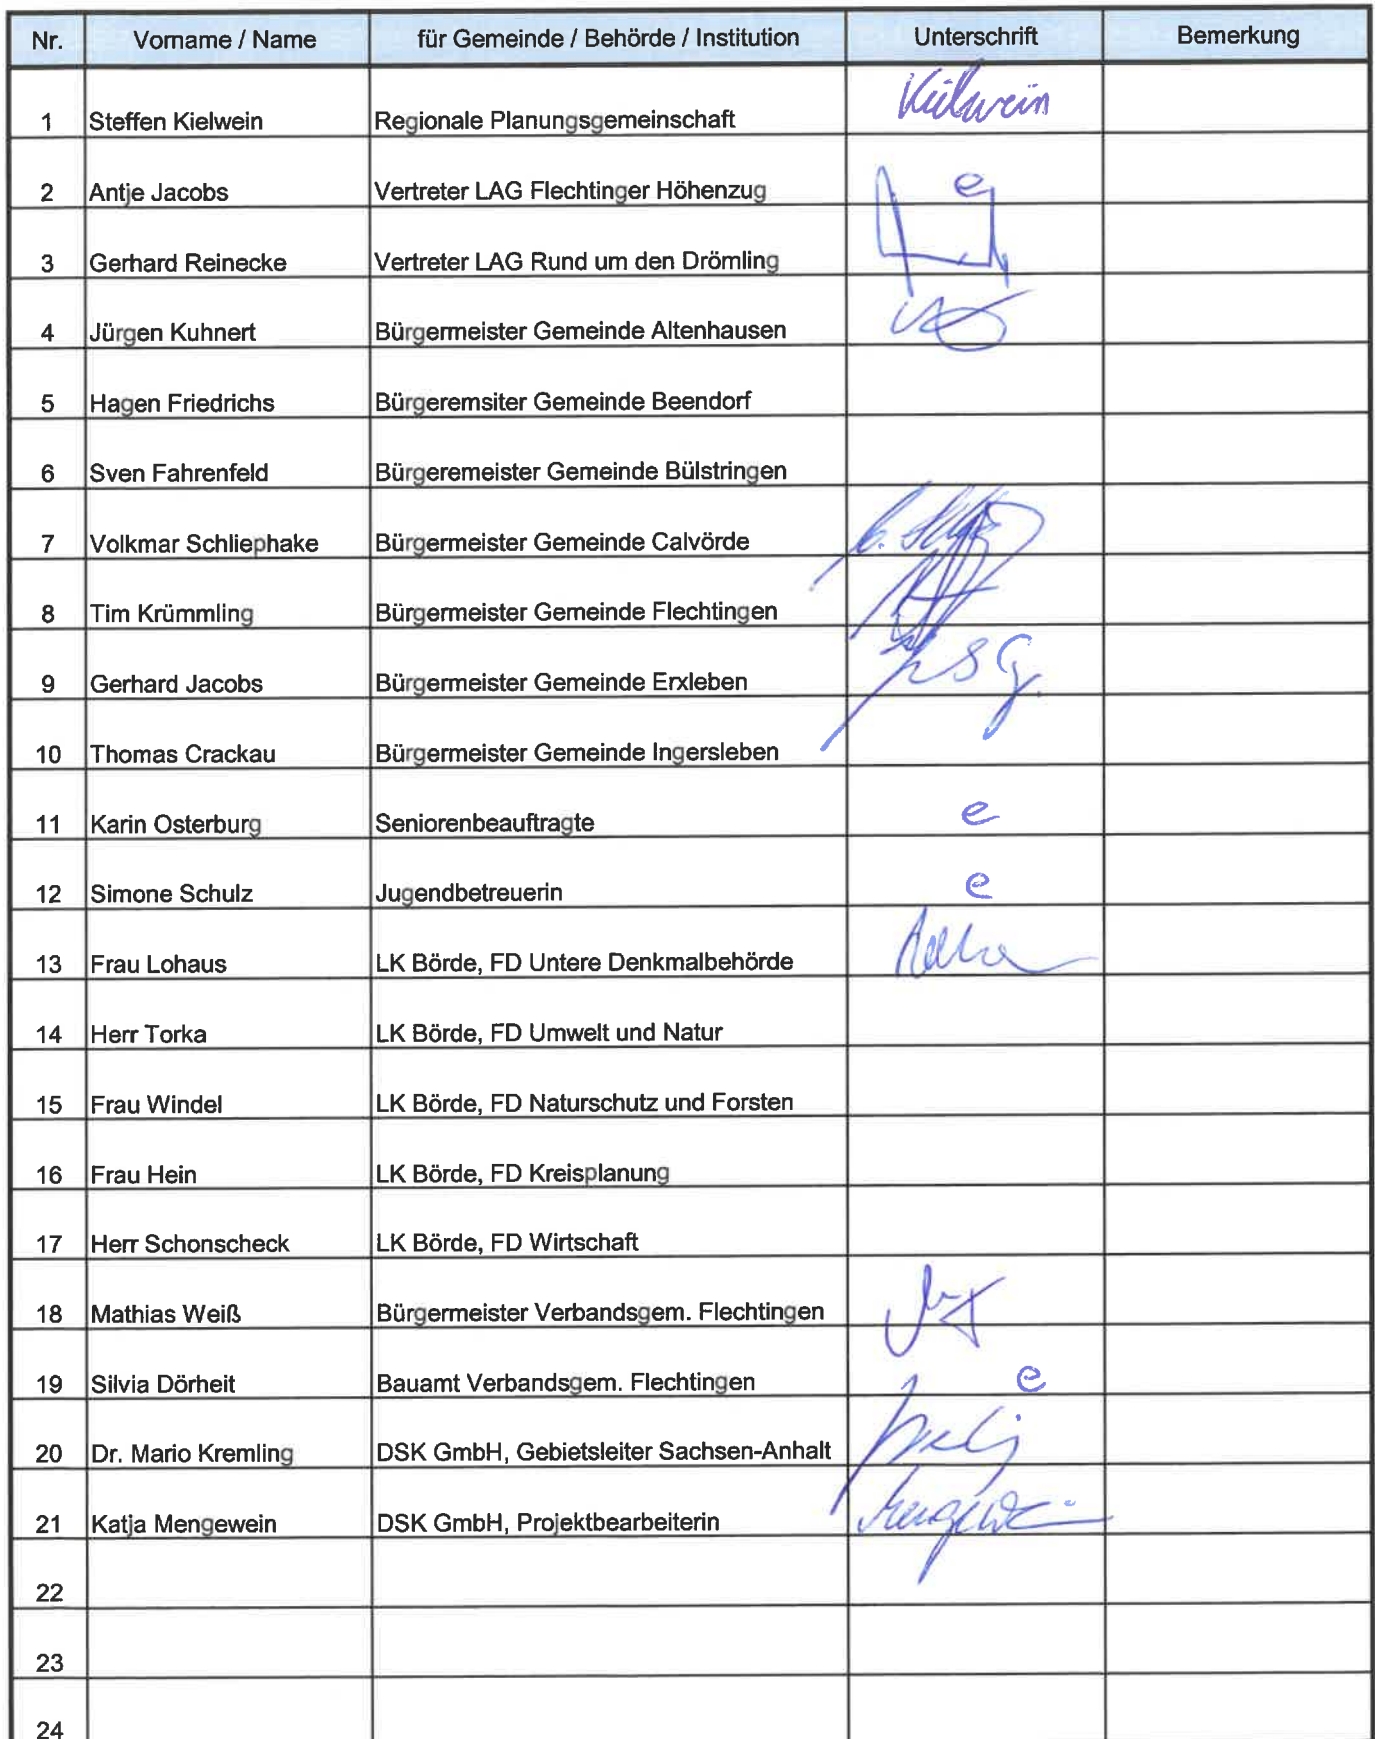 Nr. Vorname / Name für Gemeinde / Behörde / Institution Unterschrift Bemerkung
1 Steffen Kielwein Regionale Planungsgemeinschaft Kielwein
2 Antje Jacobs Vertreter LAG Flechtinger Höhenzug e
3 Gerhard Reinecke Vertreter LAG Rund um den Drömling
4 Jürgen Kuhnert Bürgermeister Gemeinde Altenhausen
5 Hagen Friedrichs Bürgeremsiter Gemeinde Beendorf
6 Sven Fahrenfeld Bürgeremeister Gemeinde Bülstringen
7 Volkmar Schliephake Bürgermeister Gemeinde Calvörde
8 Tim Krümmling Bürgermeister Gemeinde Flechtingen
9 Gerhard Jacobs Bürgermeister Gemeinde Erxleben
10 Thomas Crackau Bürgermeister Gemeinde Ingersleben
11 Karin Osterburg Seniorenbeauftragte e
12 Simone Schulz Jugendbetreuerin e
13 Frau Lohaus LK Börde, FD Untere Denkmalbehörde
14 Herr Torka LK Börde, FD Umwelt und Natur
15 Frau Windel LK Börde, FD Naturschutz und Forsten
16 Frau Hein LK Börde, FD Kreisplanung
17 Herr Schonscheck LK Börde, FD Wirtschaft
18 Mathias Weiß Bürgermeister Verbandsgem. Flechtingen
19 Silvia Dörheit Bauamt Verbandsgem. Flechtingen e
20 Dr. Mario Kremling DSK GmbH, Gebietsleiter Sachsen-Anhalt
21 Katja Mengewein DSK GmbH, Projektbearbeiterin
22
23
24